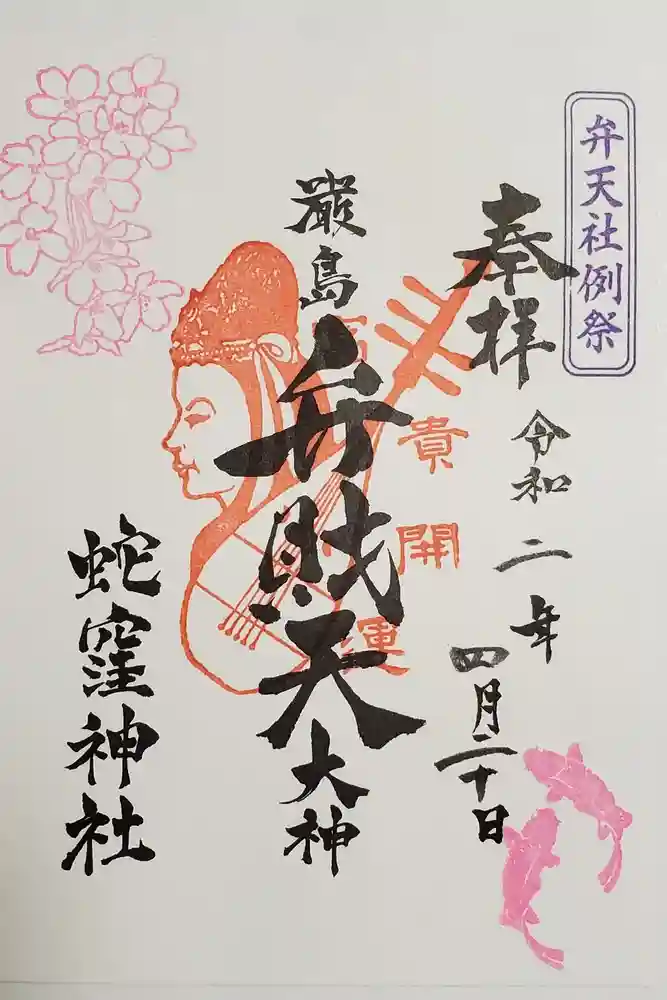 弁天社例祭
奉拝
令和二年
四月二十日
貴
開
運
厳島
弁財天
大神
蛇窪神社